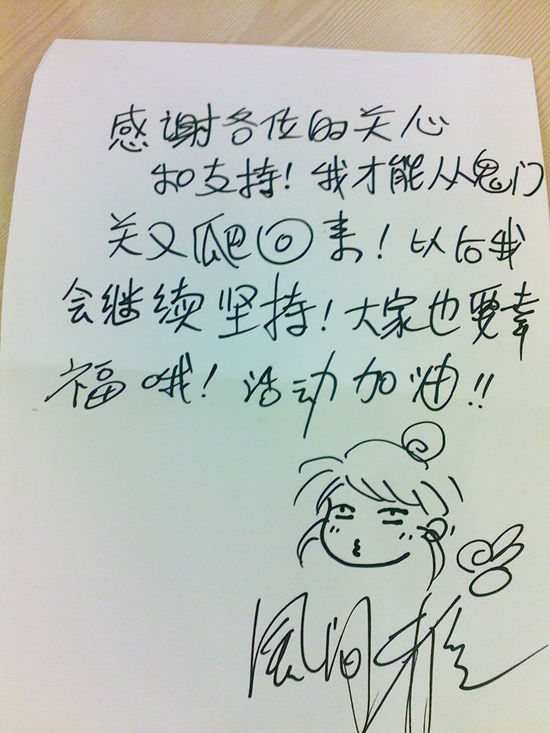 感谢各位的关心
和支持!我才能从鬼门
关又爬回来!以后我
会继续坚持!大家也要幸
福哦!活动加油!!
風间